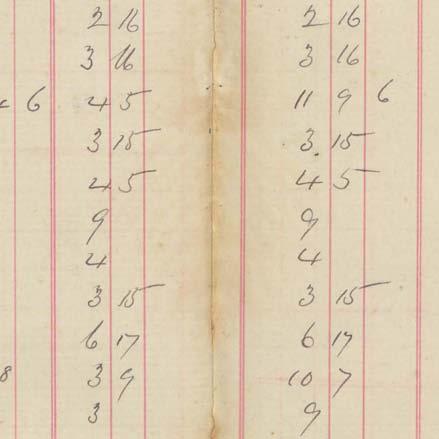 2 16 2 16
3 16 3 16
6 4 5 11 9 6
3 15 3 15
4 5 4 5
9 9
4 4
3 15 3 15
6 17 6 17
8 3 9 10 7
3 9